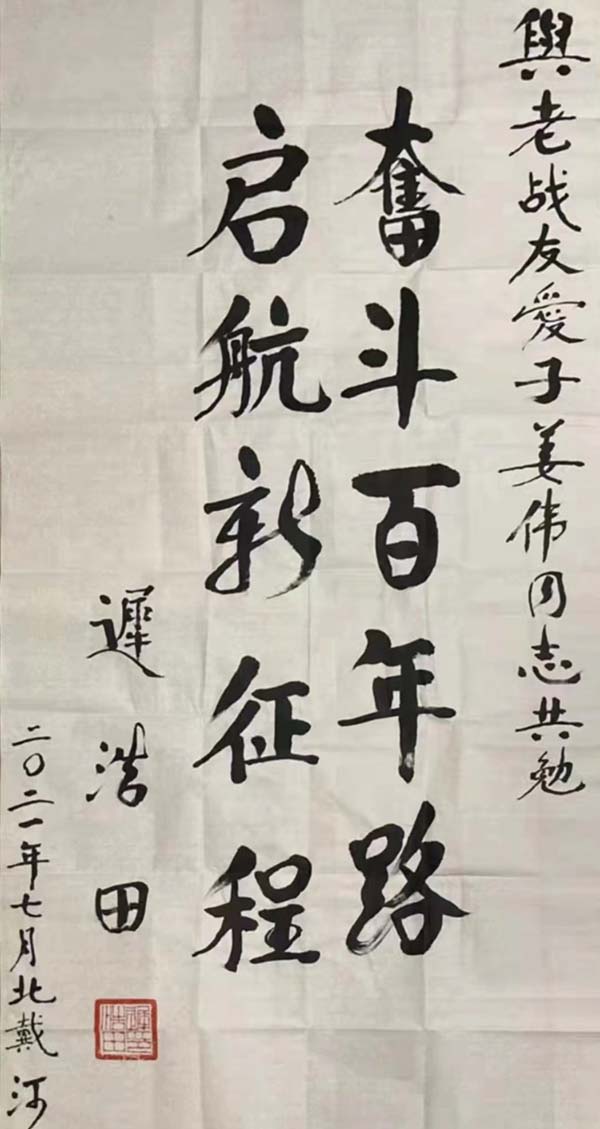 與老战友愛子姜伟同志共勉
奮斗百年路
启航新征程
遲浩田
二〇二一年七月北戴河